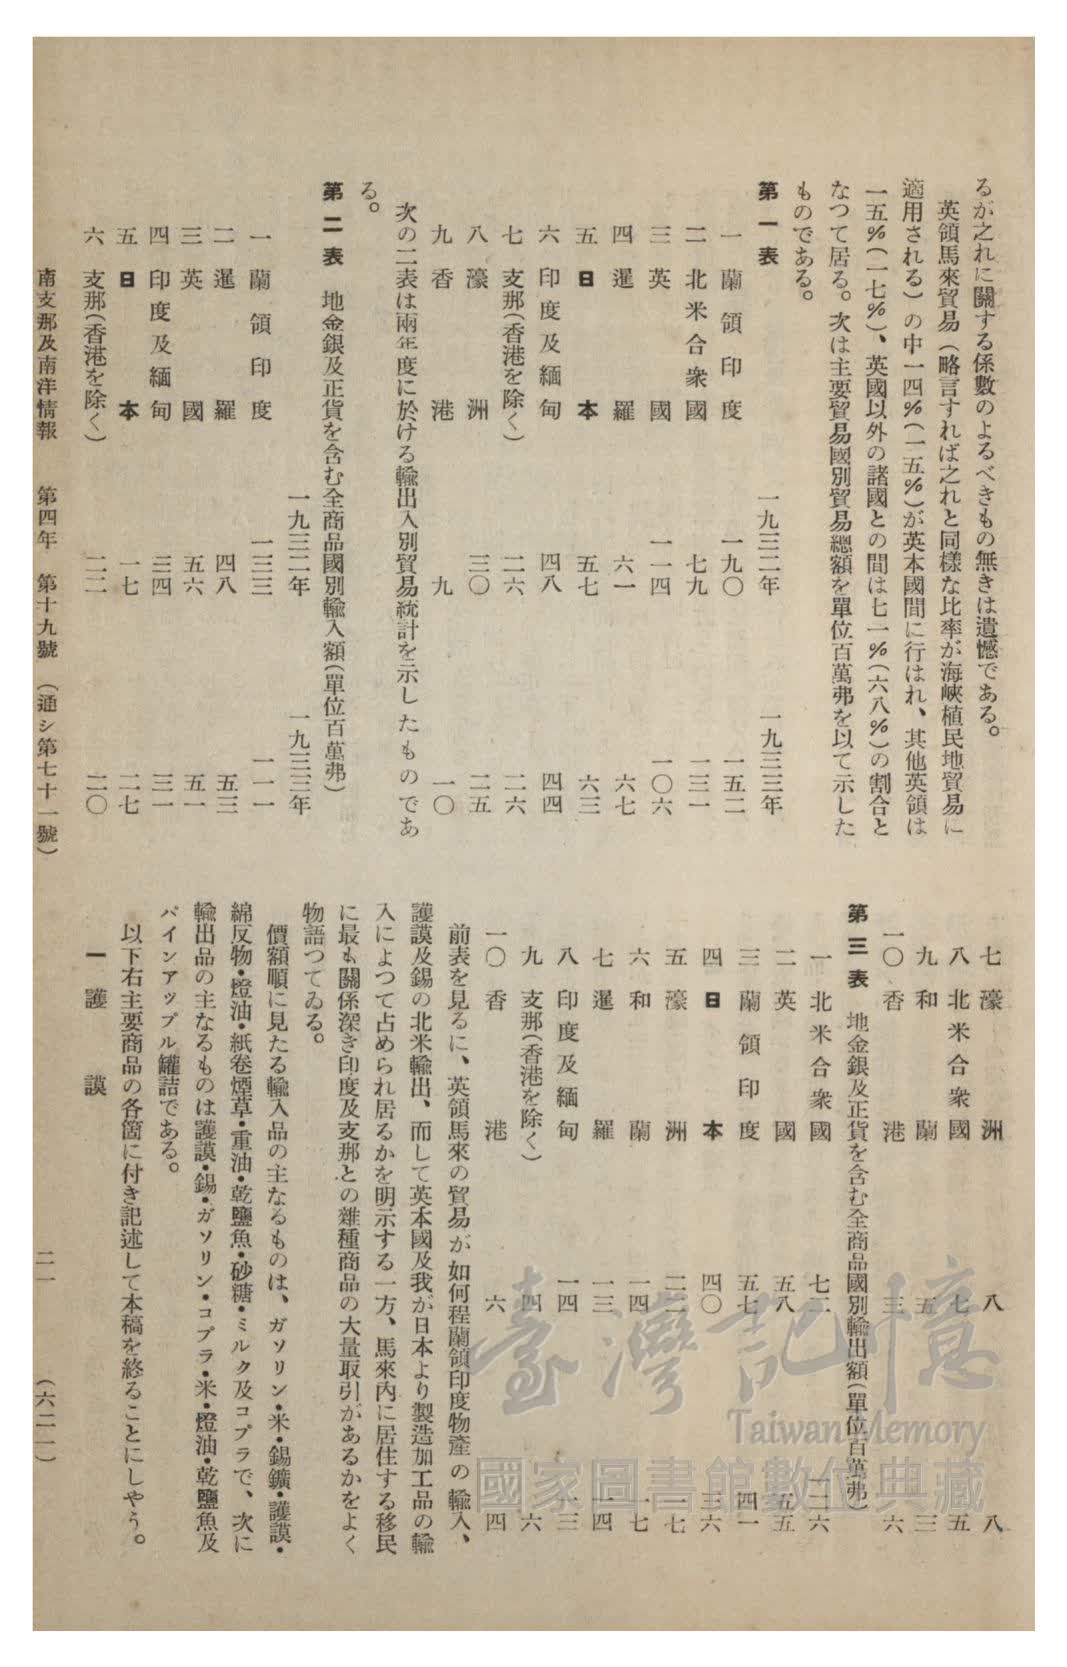 るが之れに關する係數のよるべきもの無きは遺憾である。
英領馬來貿易(略言すれば之れと同樣な比率が海峽植民地貿易に
適用される)の中一四%(一五%)が英本國間に行はれ、其他英領は
一五%(一七%)、英國以外の諸國との間は七一%(六八%)の割合と
なつて居る。次は主要貿易國別貿易總額を單位百萬弗を以て示した
ものである。
第一表 一九三二年 一九三三年
一 蘭領印度 一九〇 一五二
二 北米合衆國 七九 一三一
三 英國 一一四 一〇六
四 暹羅 六一 六七
五 日本 五七 六三
六 印度及緬甸 四八 四四
七 支那(香港を除く) 二六 二六
八 濠洲 三〇 二五
九 香港 九 一〇
次の二表は兩年度に於ける輸出入別貿易統計を示したものであ
る。
第二表 地金銀及正貨を含む全商品國別輸入額(單位百萬弗)
一九三二年 一九三三年
一 蘭領印度 一三三 一一一
二 暹羅 四八 五三
三 英國 五六 五一
四 印度及緬甸 三四 三一
五 日本 一七 二七
六 支那(香港を除く) 二二 二〇
七 濠洲 八 八
八 北米合衆國 七 五
九 和蘭 五 三
一〇 香港 三 六
第三表 地金銀及正貨を含む全商品國別輸出額(單位百萬弗)
一 北米合衆國 七二 一二六
二 英國 五八 五五
三 蘭領印度 五七 四一
四 日本 四〇 三六
五 濠洲 二二 一七
六 和蘭 一四 一七
七 暹羅 一三 一四
八 印度及緬甸 一四 一三
九 支那(香港を除く) 四 六
一〇 香港 六 四
前表を見るに、英領馬來の貿易が如何程蘭領印度物產の輸入、
護謨及錫の北米輸出、而して英本國及我が日本より製造加工品の輸
入によつて占められ居るかを明示する一方、馬來內に居住する移民
に最も關係深き印度及支那との雜種商品の大量取引があるかをよく
物語つてゐる。
價額順に見たる輸入品の主なるものは、ガソリン・米・錫鑛・護謨・
綿反物・燈油・紙卷煙草・重油・乾鹽魚・砂糖・ミルク及コプラで、次に
輸出品の主なるものは護謨・錫・ガソリン・コプラ・米・燈油・乾鹽魚及
パインアツプル罐詰である。
以下右主要商品の各箇に付き記述して本稿を終ることにしやう。
一 護謨
南支那及南洋情報 第四年 第十九號 (通シ第七十一號) 二一 (六二一)
臺灣記憶
Taiwan Memory
國家圖書館數位典藏